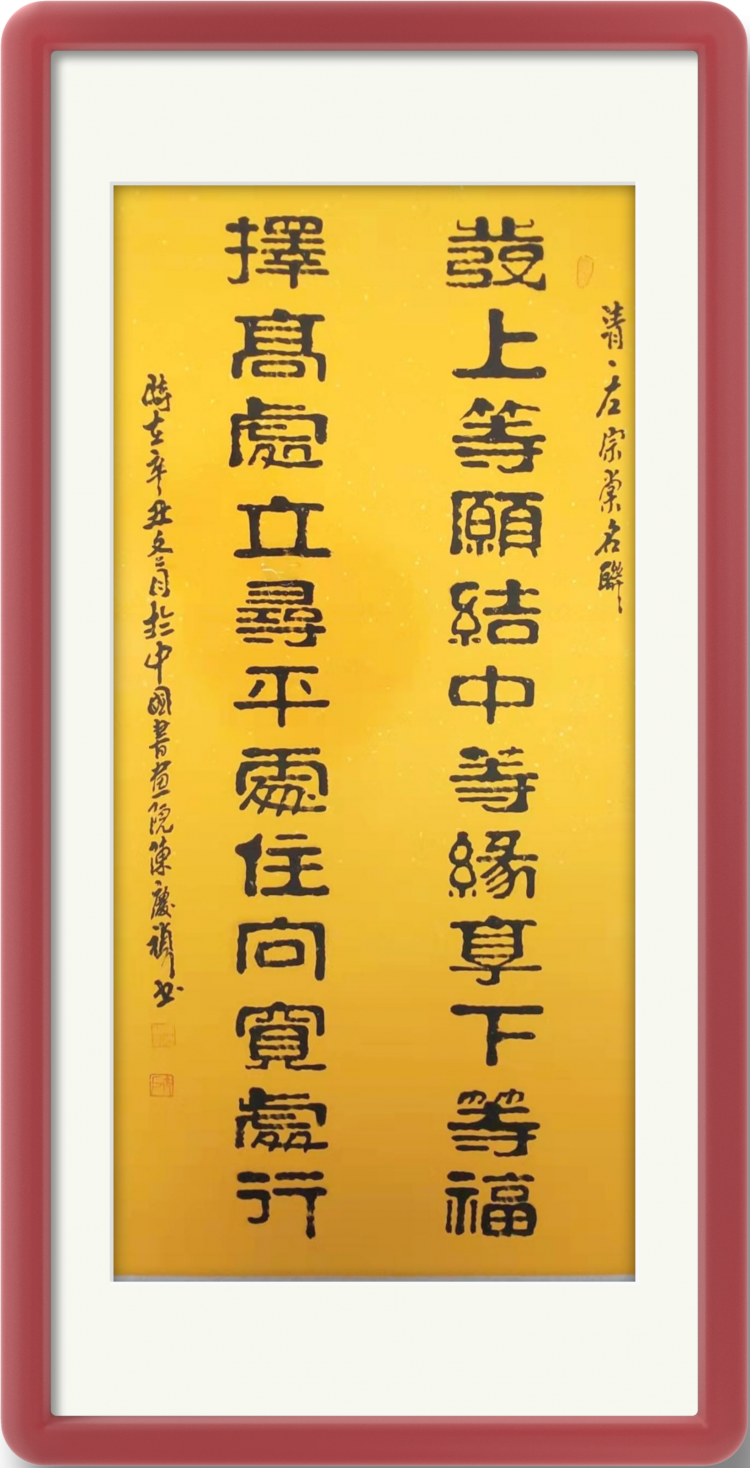 清、左宗棠名聯
發上等願結中等緣享下等福
擇高處立尋平處住向寬處行
時在辛丑冬月於中國書画院陳慶禎书